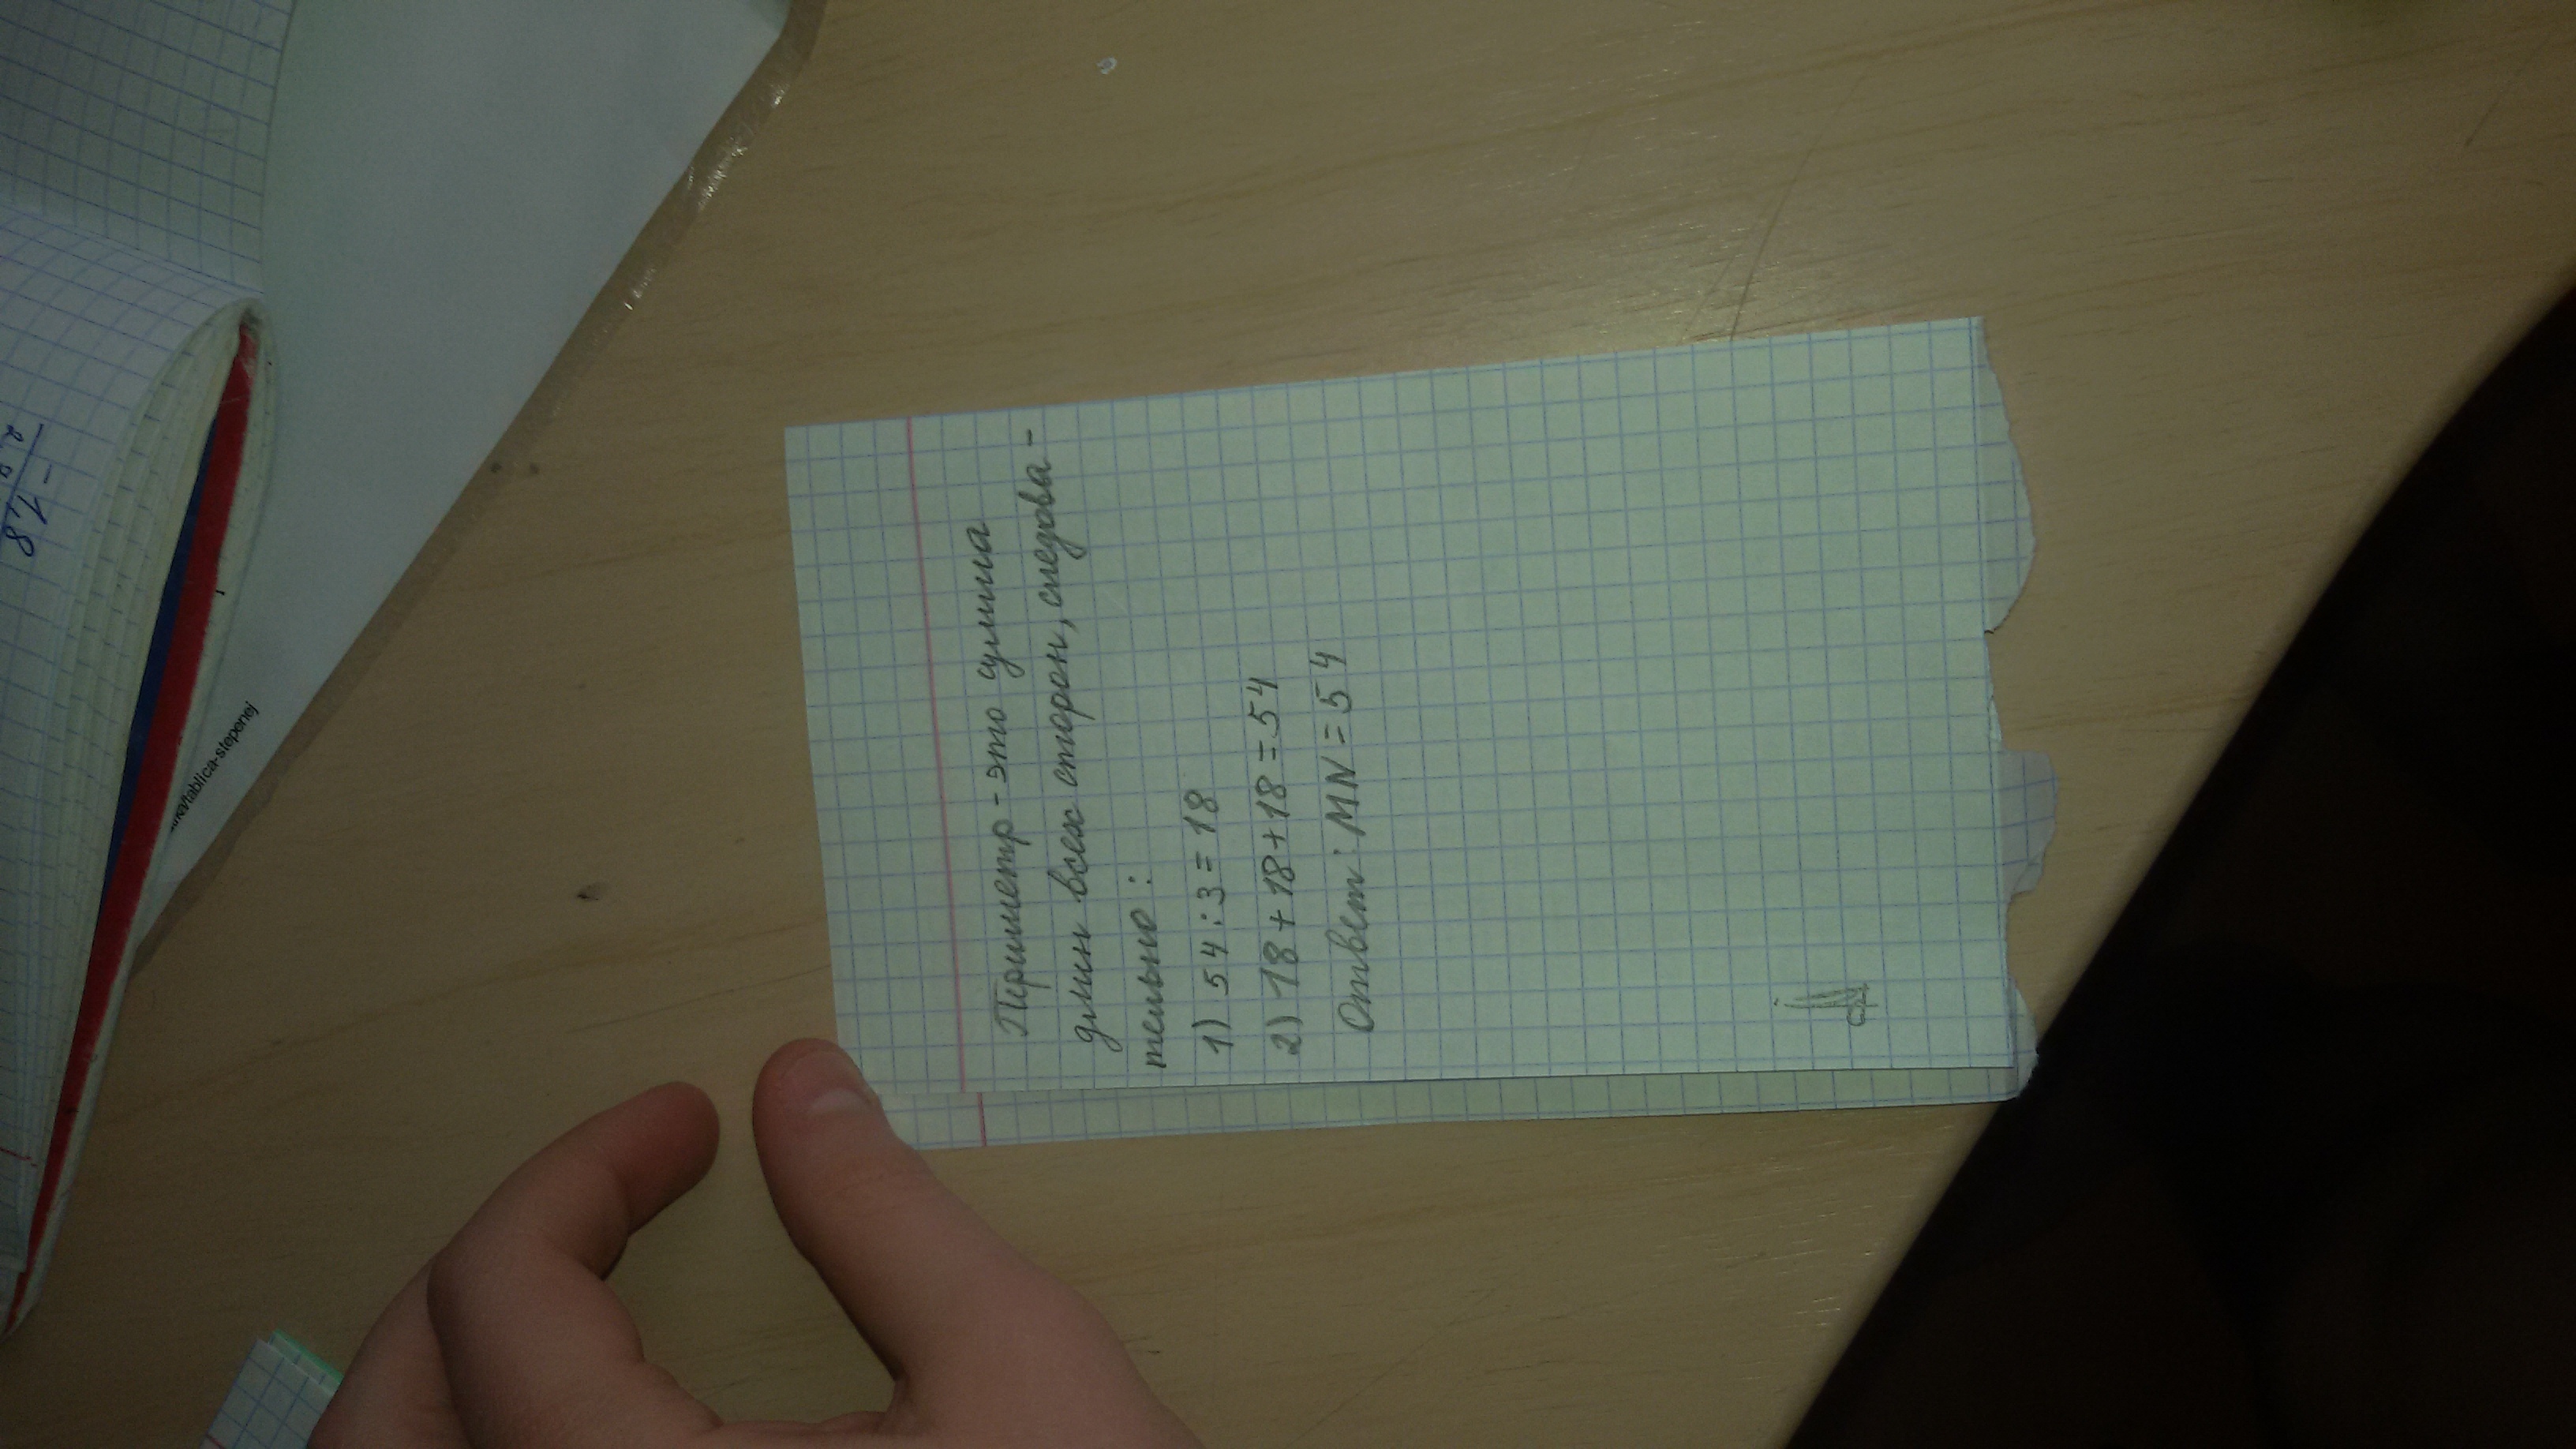 Периметр - это сумма
длин всех сторон, следова-
тельно :
1) 54 : 3 = 18
2) 18 + 18 + 18 = 54
Ответ : MN = 54
tablica-stepenej